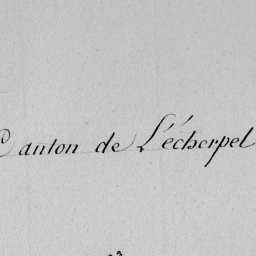 Canton de L'écherpel